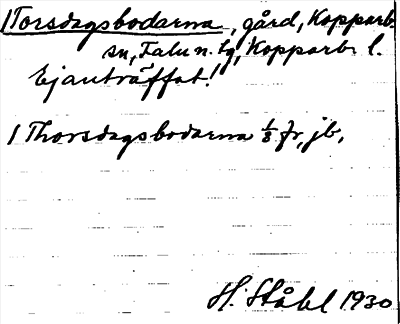 1 Torsdagsbodarna, gård, Kopparb.
sn, Falu n. tg, Kopparb. l.
Ej anträffat!
1 Thorsdagsbodarna 1/8 fr, jb,
H. Ståhl 1930